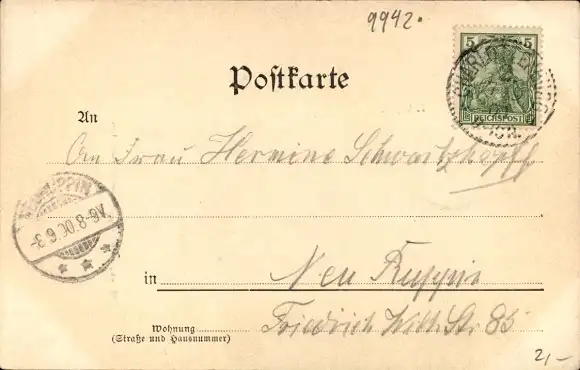 9942.
5
REICHSPOST
Postkarte
An
An Frau Hermine Schwartzkopff
NEURUPPIN
6.8.00 6-3
in Neu Ruppin
Wohnung
(Straße und Hausnummer)
Friedrich Wilh Str 85
2,-